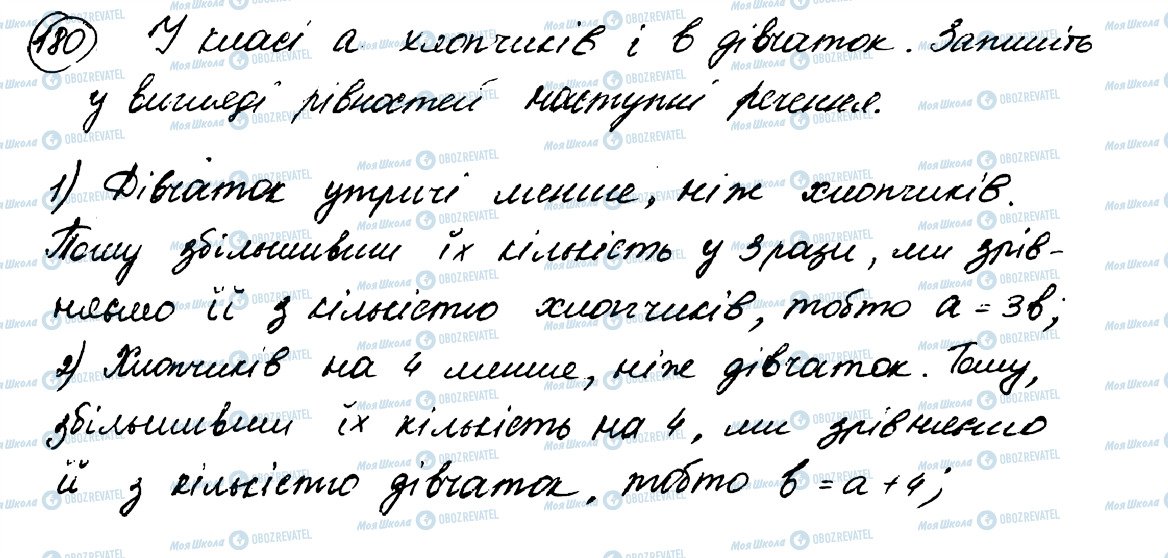 180 У класі a хлопчиків і b дівчаток. Запишіть
у вигляді рівностей наступні речення.
1) Дівчаток утричі менше, ніж хлопчиків.
Тому збільшивши їх кількість у 3 рази, ми зрів-
няємо її з кількістю хлопчиків, тобто a = 3b;
2) Хлопчиків на 4 менше, ніж дівчаток. Тому,
збільшивши їх кількість на 4, ми зрівняємо
її з кількістю дівчаток, тобто b = a + 4;